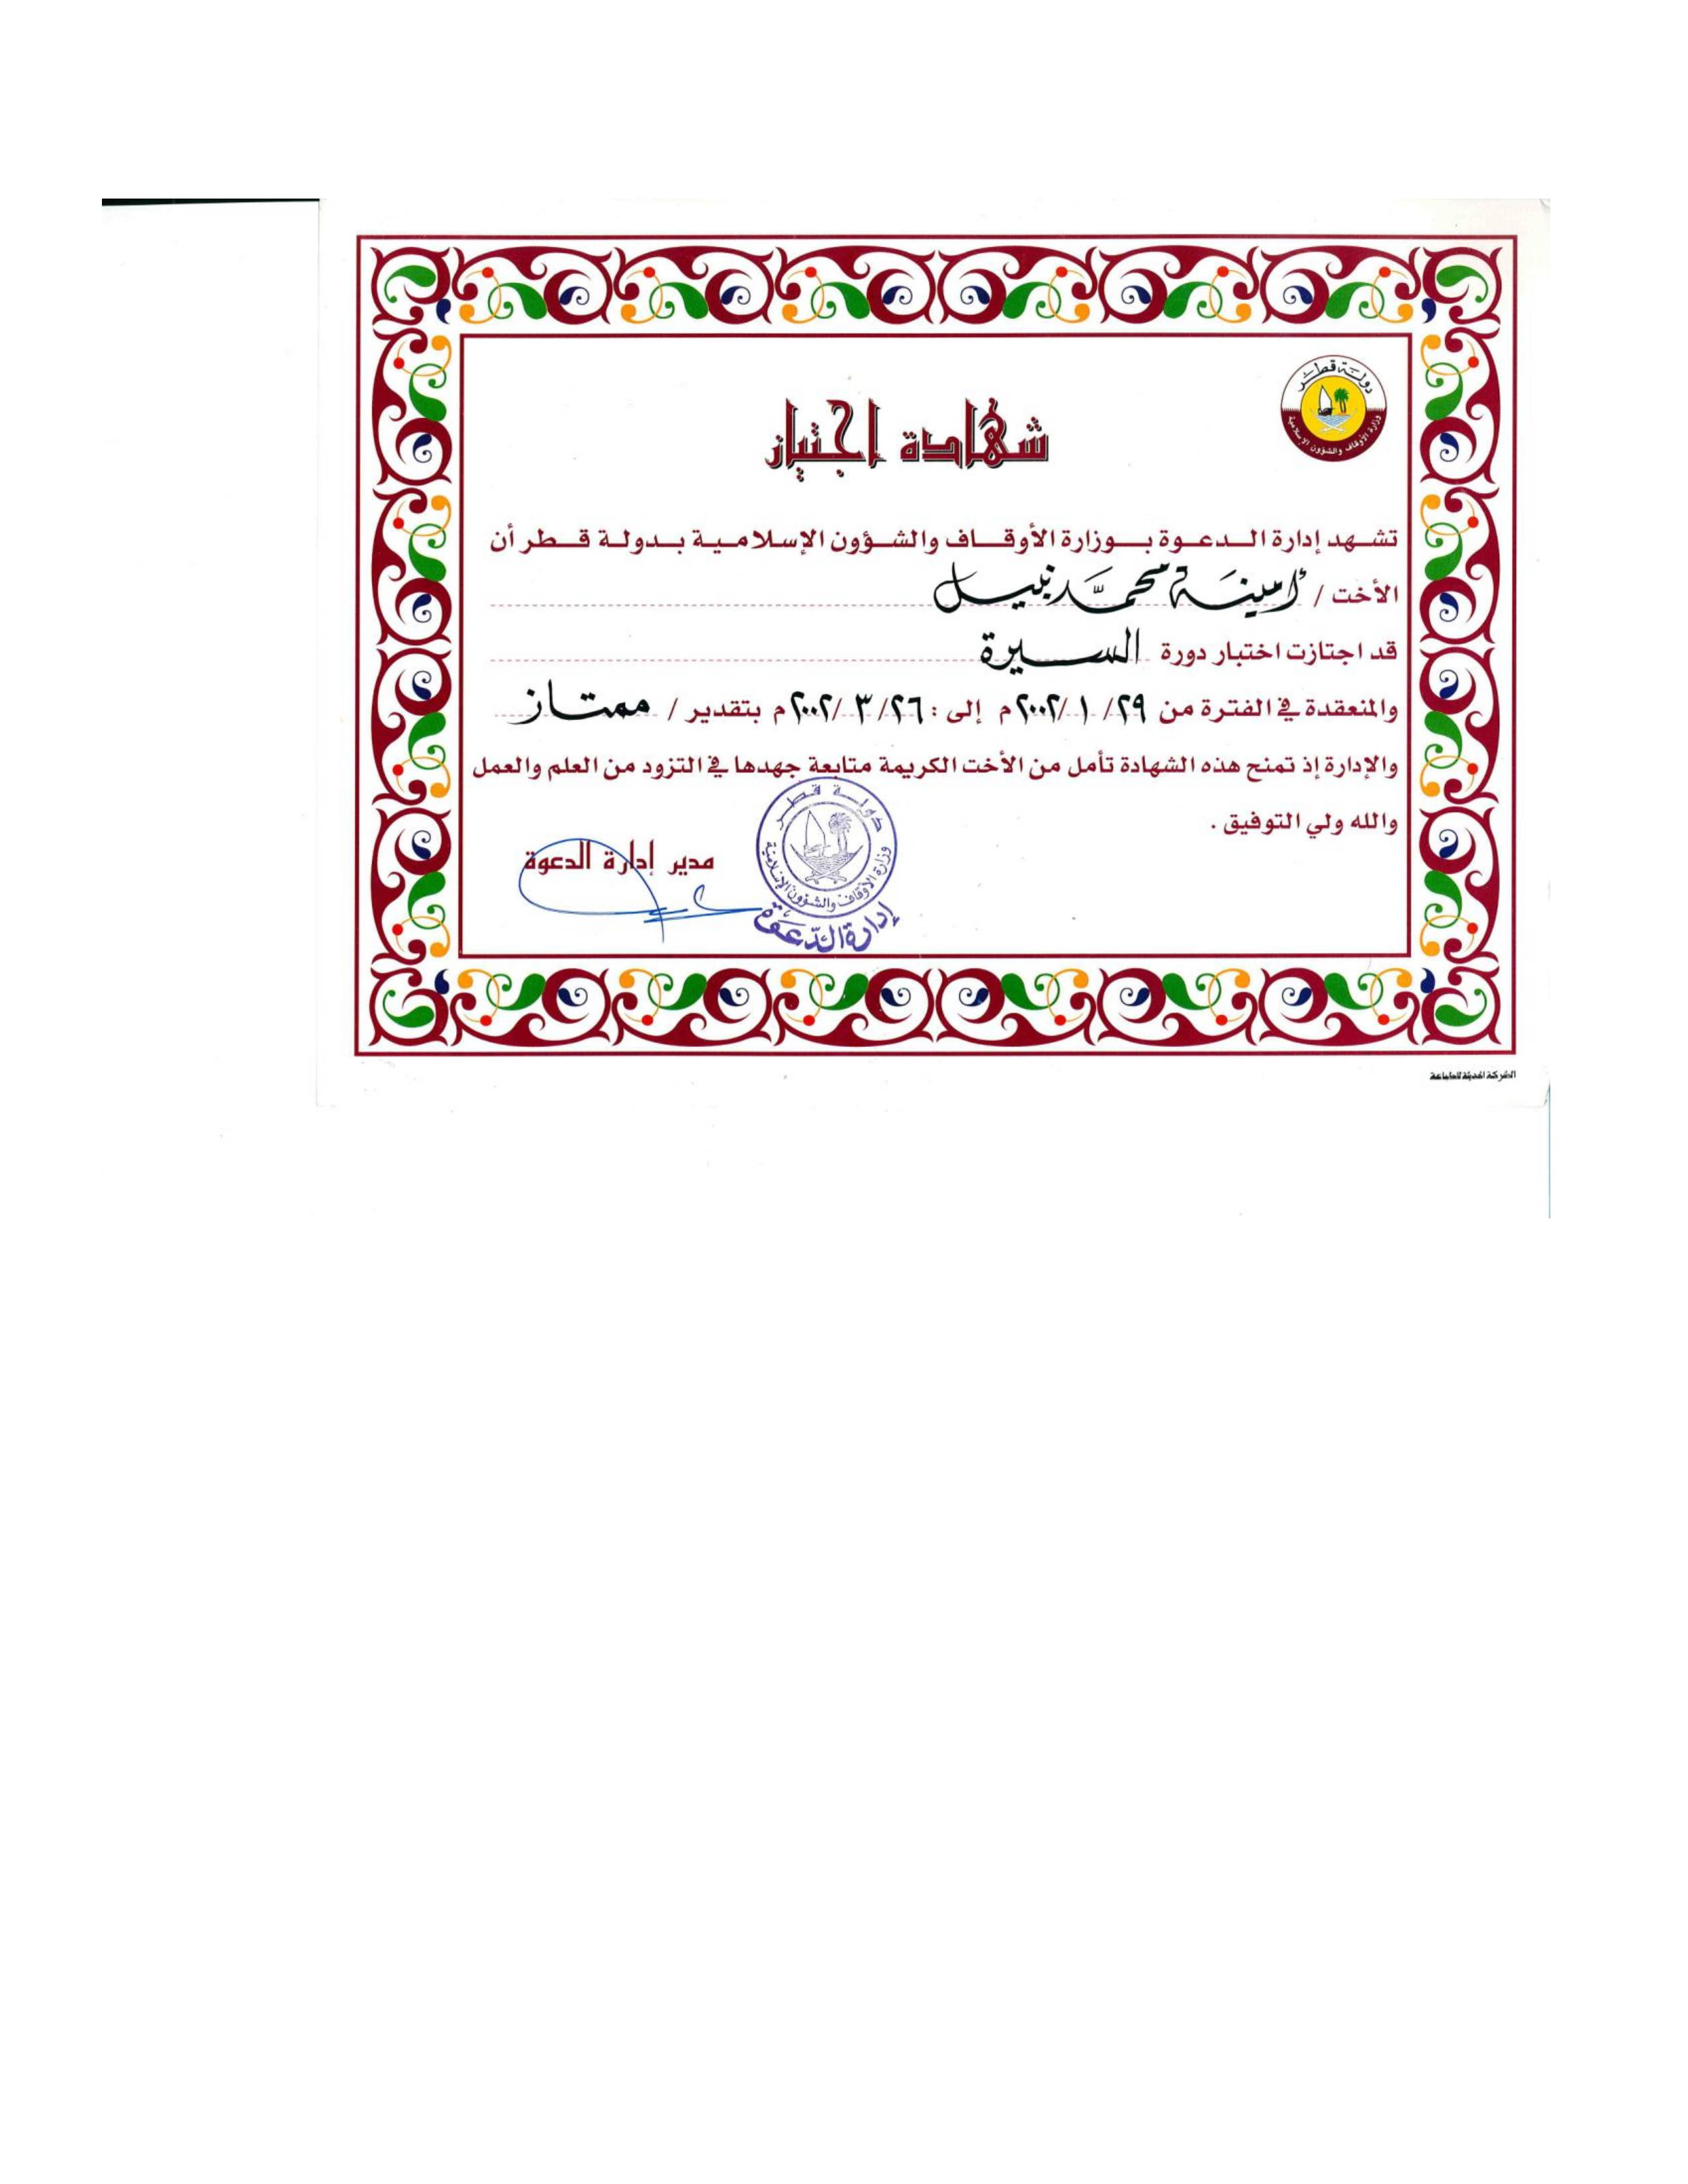 دولة قطر
وزارة الأوقاف والشؤون الإسلامية
شهادة إجتياز
تشهد إدارة الدعوة بوزارة الأوقاف والشؤون الإسلامية بدولة قطر أن
الأخت / أمينة محمد نبيل
قد اجتازت اختبار دورة السيرة
والمنعقدة في الفترة من ٢٩/ ١ /٢٠٠٢م إلى : ٢٦/ ٣ /٢٠٠٢م بتقدير / ممتاز
والإدارة إذ تمنح هذه الشهادة تأمل من الأخت الكريمة متابعة جهدها في التزود من العلم والعمل
والله ولي التوفيق .
مدير إدارة الدعوة
دولة قطر
وزارة الأوقاف والشؤون الإسلامية
إدارة الدعوة
الشركة الحديثة للطباعة